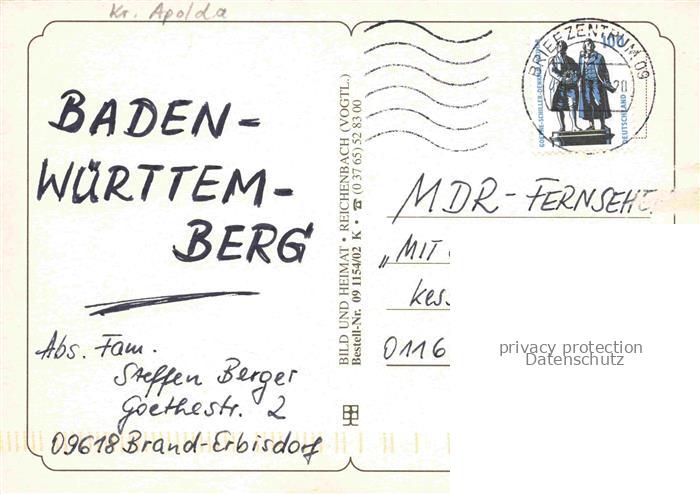 Kr. Apolda
BADEN-
WÜRTTEM-
BERG
Abs. Fam.
Steffen Berger
Goethestr. 2
09618 Brand-Erbisdorf
BILD UND HEIMAT • REICHENBACH (VOGTL.)
Bestell-Nr. 09 1154/02 K • ☎ (0 37 65) 52 83 00
BRIEFZENTRUM 09
100
GOETHE-SCHILLER-DENKMAL
DEUTSCHLAND
MDR-FERNSEHEN
"MIT
0116
privacy protection
Datenschutz